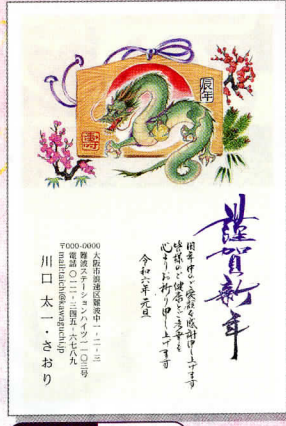 辰年
寿
謹賀新年
旧年中のご愛顧を感謝申し上げます
皆様のご健康とご多幸を
心よりお祈り申し上げます
令和六年元旦
〒000-0000
大阪市浪速区難波中一-二-三
難波ステーションハイツ一一〇三号
電話〇一二-三四五-六七八九
mail:taichi@kawaguchi.jp
川口 太一・さおり